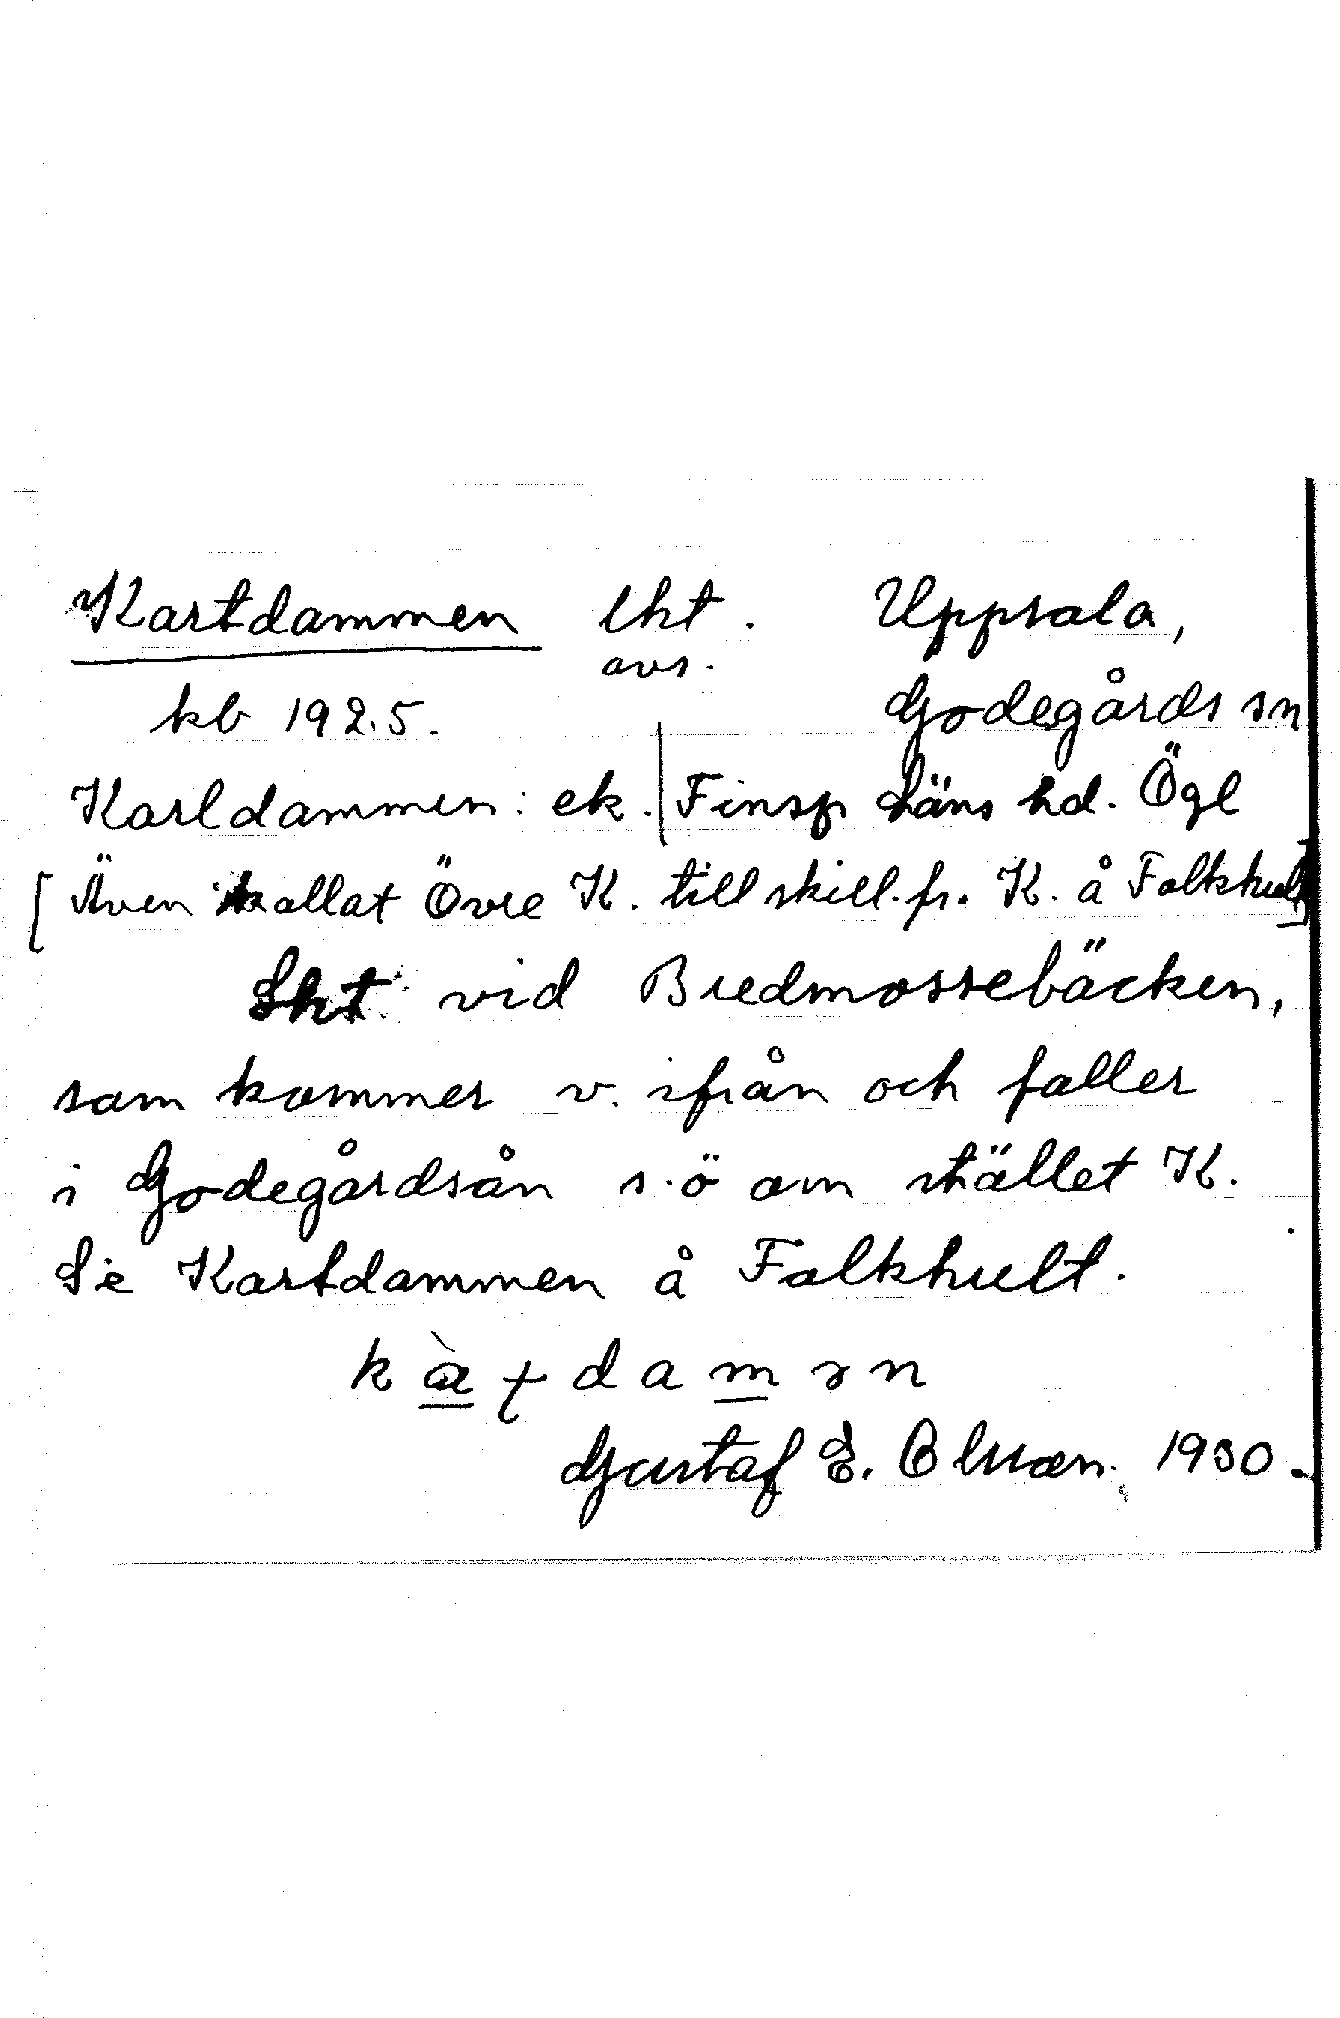 Kartdammen lht. Uppsala,
avs.
kb 1925. Godegårds sn
Karldammen: ek. Finsp läns hd. Ögl
[Även kallat Övre K. till skill. fr. K. å Falkhult]
Lht vid Bredmossebäcken,
som kommer v. ifrån och faller
i Godegårdsån s.ö om stället K.
Se Kartdammen å Falkhult.
damən
Gustaf E. Olsson. 1930.